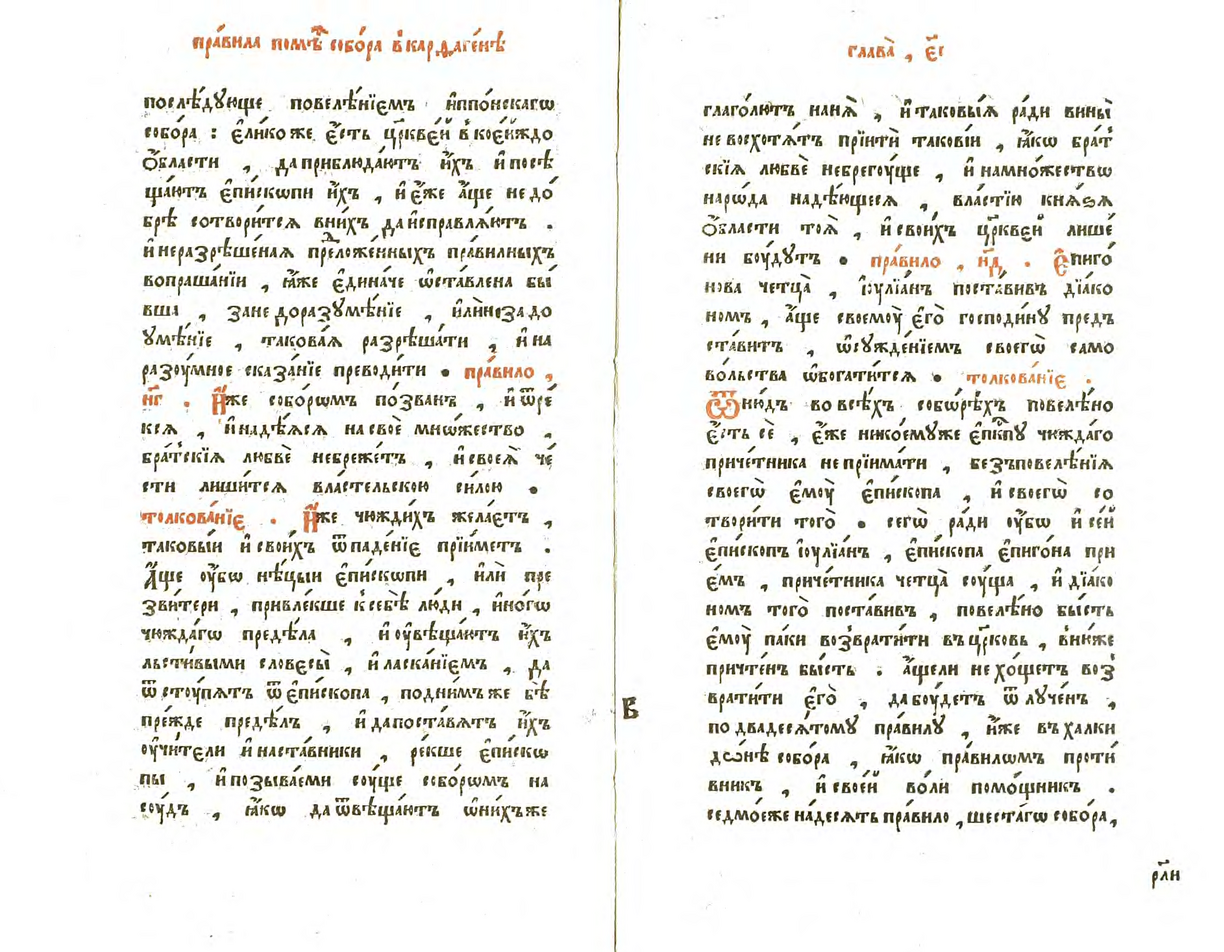 пра́вила помѣ́стⷩ собо́ра в̾карѳаге́нѣ
послѣ́дꙋюще повелѣ́нїємъ и҆ппо́нскагѡ
собо́ра : є҆ли́коже є҆́сть цр҃кве́й в̾кое́йждо
ѻ҆́бласти , да приблюда́ютъ и҆́хъ и҆ посѣ
ща́ютъ є҆пи́скѡпи и҆́хъ , и҆ є҆́же а҆́ще не до́
брѣ сотвори́тся вни́хъ да и҆справлѧ́ютъ .
и҆ неразрѣше́ная преⷣложе́нныхъ пра́вилныхъ
вопраша́нїи , ꙗ҆́же є҆ди́наче ѡ҆ста́влена бы́
вша , зане доразꙋмѣ́нїе , и҆лѝ неза до
ꙋмѣ́нїе , такова́я разрѣша́ти , и҆ на
разоу́мное сказа́нїе преводи́ти • пра́вило ,
н҃г . И҆́же собо́рѡмъ по́званъ , и҆ ѿре́
кся , и҆ надѣ́яся на своѐ мнѡ́жество ,
бра́тскїя любвѐ небреже́тъ , и҆ своеѧ̀ че́
сти лиши́тся вла́стельскою си́лою •
толкова́нїє . И҆́же чюжди́хъ жела́етъ ,
таковы́и и҆ свои́хъ ѿпаде́нїє прїи́метъ .
А҆́ще оу҆́бѡ нѣ́цыи є҆пи́скѡпи , и҆лѝ пре
зви́тери , привле́кше к̾себѣ̀ лю́ди , и҆но́гѡ
чюжда́гѡ предѣ́ла , и҆ оу҆вѣща́ютъ и҆́хъ
льсти́выми словесы̀ , и҆ ласка́нїемъ , да
ѿстоу́пятъ ѿ є҆пи́скопа , подни́мъже бѣ̀
пре́жде предѣ́лъ , и҆ да поста́вятъ и҆́хъ
оу҆чи́тели и҆ наста́вники , ре́кше є҆пи́скѡ
пы , и҆ позыва́еми соу́ще собо́рѡмъ на
соу́дъ , ꙗ҆́кѡ да ѿвѣща́ютъ ѡ҆ни́хъже
глава̀ , є҃і
глаго́лютъ нанѧ̀ , и҆ таковы́ѧ ра́ди вины̀
не восхотѧ́тъ прїитѝ такові́и , ꙗ҆́кѡ бра́т
скїѧ любвѐ небрегоу́ще , и҆ намно́жествѡ
наро́да надѣ́ющеся , вла́стїю кня́ѕя
ѻ҆́бласти тоѧ̀ , и҆ свои́хъ цр҃кве́й лише
ни боу́дутъ • пра́вило , н҃д . Є҆пиго́
нова четца̀ , і҆оулїа́нъ поста́вивъ дїа́ко
номъ , а҆́ще своемоу̀ є҆го̀ господи́нꙋ предъ
ста́витъ , ѡ҆сꙋжде́нїемъ своегѡ̀ само
во́льства ѡ҆богати́тся • толкова́нїє .
Ѿню́дъ во всѣ́хъ собо́рѣхъ повелѣ́но
є҆́сть сѐ , є҆́же нико́емꙋже є҆пⷭ҇кпꙋ чюжда́го
приче́тника не прїима́ти , безъповелѣ́нїя
своегѡ̀ є҆моу̀ є҆пи́скопа , и҆ своегѡ̀ со
твори́ти того̀ • сегѡ̀ ра́ди оу҆́бѡ и҆ се́й
є҆пи́скопъ і҆оулїа́нъ , є҆пи́скопа є҆пиго́на при
є́мъ , приче́тника четца̀ соу́ща , и҆ дїа́ко
номъ того̀ поста́вивъ , повелѣ́но бы́сть
є҆моу̀ па́ки возврати́ти въ цр҃ковь , вни́же
причте́нъ бы́сть . а҆́щели не хо́щетъ воз̾
врати́ти є҆го̀ , да боу́детъ ѿлу́ченъ ,
по двадеся́томꙋ пра́вилꙋ , и҆́же въ халки
до́нѣ собо́ра , ꙗ҆́кѡ пра́вилѡмъ проти́
вникъ , и҆ свое́й во́ли помо́щникъ .
седмо́еже на́десять пра́вило , шеста́гѡ собо́ра ,
в҃
рл҃и